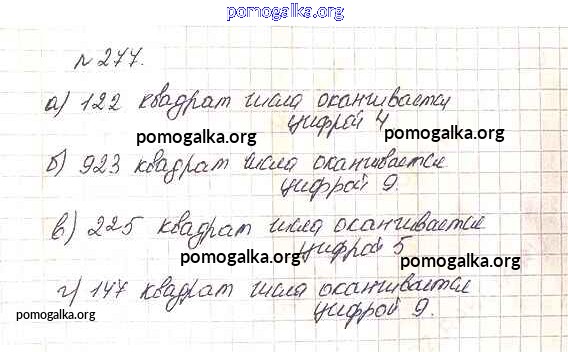 pomogalka.org
№ 277.
а) 122 квадрат числа оканчивается
цифрой 4
pomogalka.org
pomogalka.org
б) 923 квадрат числа оканчивается
цифрой 9.
в) 225 квадрат числа оканчивается
цифрой 5
pomogalka.org
pomogalka.org
г) 147 квадрат числа оканчивается
цифрой 9.
pomogalka.org